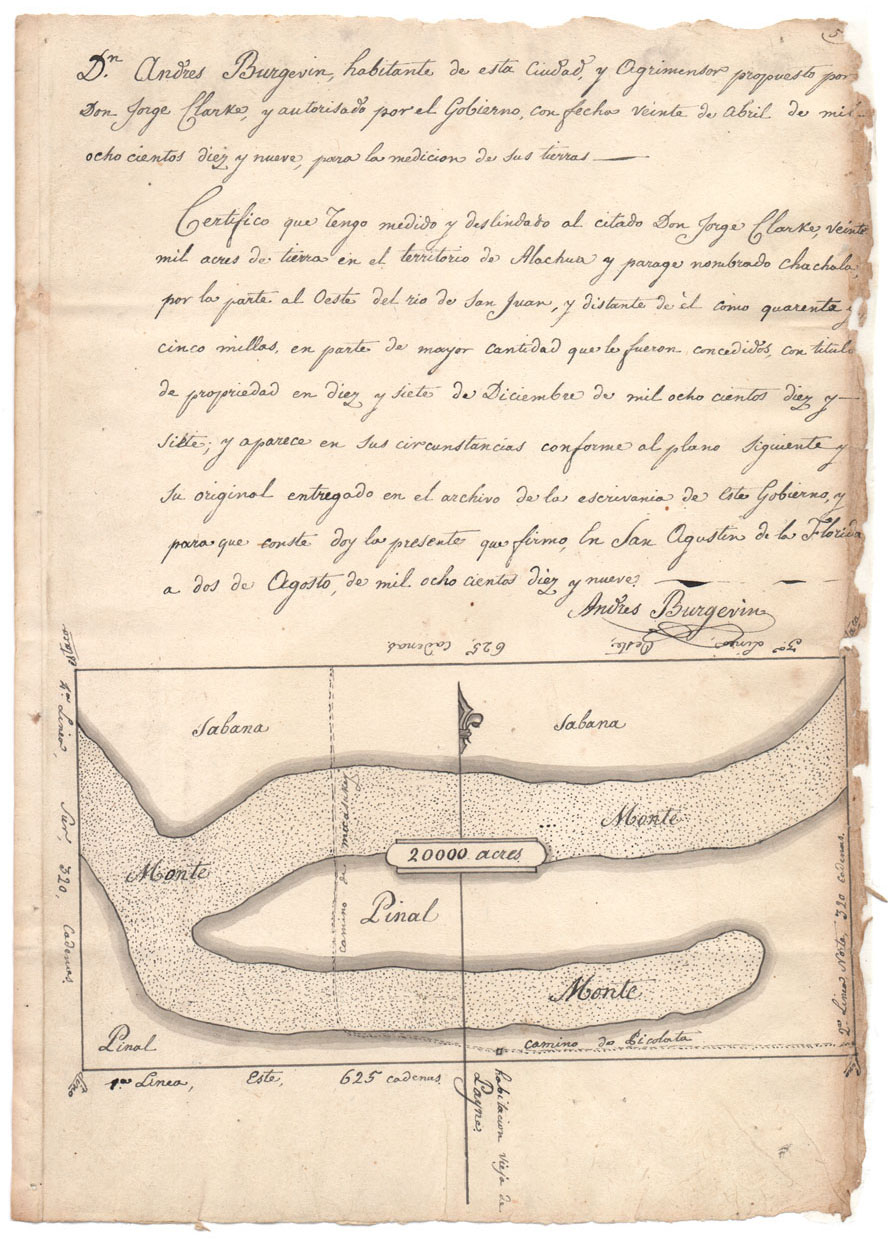 5
D.n Andres Burgevin, habitante de esta Ciudad, y Agrimensor propuesto por
Don Jorge Clarke, y autorisado por el Gobierno, con fecha veinte de Abril de mil
ocho cientos diez y nueve, para la medicion de sus tierras —
Certifico que tengo medido y deslindado al citado Don Jorge Clarke, veinte
mil acres de tierra en el territorio de Alachua y parage nombrado Chachala,
por la parte al Oeste del rio de San Juan, y distante de èl como quarenta y
cinco millas, en parte de mayor cantidad que le fueron concedidos, con titulo
de propriedad en diez y siete de Diciembre de mil ocho cientos diez y —
siete; y aparece en sus circunstancias conforme al plano siguiente y
su original entregado en el archivo de la escrivania de este Gobierno, y
para que conste doy la presente que firmo, En San Agustin de la Florida
a dos de Agosto, de mil ocho cientos diez y nueve. —
Andres Burgevin
3.ra Linea, Oeste, 625, Cadenas
4.ta Linea, Sur, 320, Cadenas
Sabana
Sabana
Monte
Monte
20000 acres
camino de micasukey
Pinal
Monte
2.a Linea Norte, 320 cadenas.
Pinal
camino do Picolata
1.ra Linea, Este, 625 cadenas
habitacion vieja de
Payne.